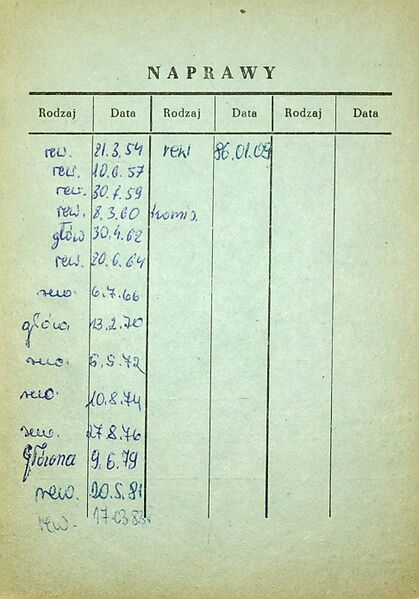 NAPRAWY
Rodzaj Data Rodzaj Data Rodzaj Data
rew. 21.3.54 rew 86.01.09
rew. 10.6.57
rew. 30.7.59
rew. 8.3.60 komis.
głów 30.4.62
rew. 20.6.64
rewo. 6.7.66
główa 13.2.70
rewo. 5.5.72
rewo. 10.8.74
rewo. 27.8.76
Główna 9.6.79
rewo. 20.5.81
rew. 17.03.83.